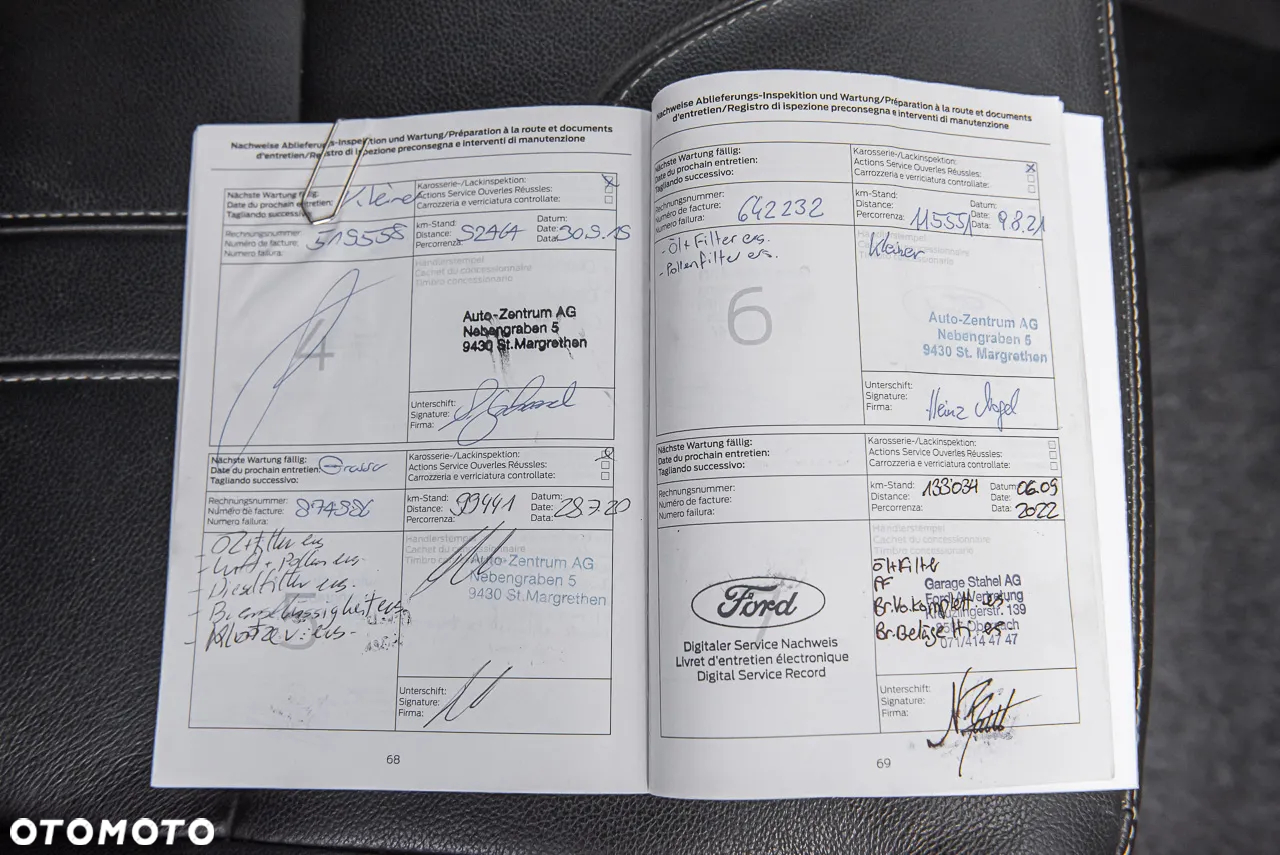 Nachweise Ablieferungs-Inspekition und Wartung/Préparation à la route et documents
d'entretien/Registro di ispezione preconsegna e interventi di manutenzione
Nächste Wartung fällig:
Date du prochain entretien:
Tagliando successivo:
Kleiner
Karosserie-/Lackinspektion:
Actions Service Ouverles Réussles:
Carrozzeria e verriciatura controllate:
Rechnungsnummer:
Numéro de facture:
Numero failura:
519558
km-Stand:
Distance:
Percorrenza:
Datum:
Date:
Data:
Händlerstempel
Cachet du concessionnaire
Timbro concessionario
4
Auto-Zentrum AG
Nebengraben 5
9430 St.Margrethen
Unterschrift:
Signature:
Firma:
Nächste Wartung fällig:
Date du prochain entretien:
Tagliando successivo:
Karosserie-/Lackinspektion:
Actions Service Ouverles Réussles:
Carrozzeria e verriciatura controllate:
Rechnungsnummer:
Numéro de facture:
Numero failura:
km-Stand:
Distance:
Percorrenza:
99441
Datum:
Date:
Data:
28.7.20
Öl+Filter ers
- Dieselfilter ers.
5
Händlerstempel
Cachet du concessionnaire
Timbro
Auto-Zentrum AG
Nebengraben 5
9430 St. Margrethen
Unterschrift:
Signature:
Firma:
68
Nachweise Ablieferungs-Inspekition und Wartung/Préparation à la route et documents
d'entretien/Registro di ispezione preconsegna e interventi di manutenzione
Nächste Wartung fällig:
Date du prochain entretien:
Tagliando successivo:
Karosserie-/Lackinspektion:
Actions Service Ouverles Réussles:
Carrozzeria e verriciatura controllate:
Rechnungsnummer:
Numéro de facture:
Numero failura:
642232
km-Stand:
Distance:
Percorrenza:
115551
Datum:
Date:
Data:
9.8.21
- Öl+Filter ers.
- Pollenfilter ers.
6
Händlerstempel
Timbro concessionario
Kleiner
Ford
Auto-Zentrum AG
Nebengraben 5
9430 St. Margrethen
Unterschrift:
Signature:
Firma:
Heinz Nagel
Nächste Wartung fällig:
Date du prochain entretien:
Tagliando successivo:
Karosserie-/Lackinspektion:
Actions Service Ouverles Réussles:
Carrozzeria e verriciatura controllate:
Rechnungsnummer:
Numéro de facture:
Numero failura:
km-Stand:
Distance:
Percorrenza:
133034
Datum:
Date:
Data:
06.09
2022
7
Ford
Digitaler Service Nachweis
Livret d'entretien électronique
Digital Service Record
Händlerstempel
Cachet du concessionnaire
Timbro concessionario
Öl+Filter
PF
Br.Vo.komplett ers
Br.Beläge Hi ers
Garage Stahel AG
Ford-Vertretung
Kreuzlingerstr. 139
071/414 47 47
Unterschrift:
Signature:
Firma:
69
OTOMOTO